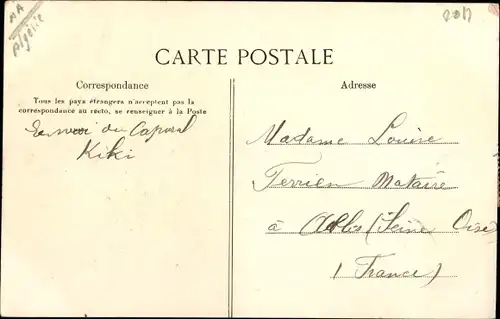 AA
Algérie
2017
CARTE POSTALE
Correspondance
Tous les pays étrangers n'acceptent pas la
correspondance au recto, se renseigner à la Poste
du Caporal
Kiki
Adresse
Madame Louise
Terrien Notaire
à Ablis (Seine Oise)
(France)